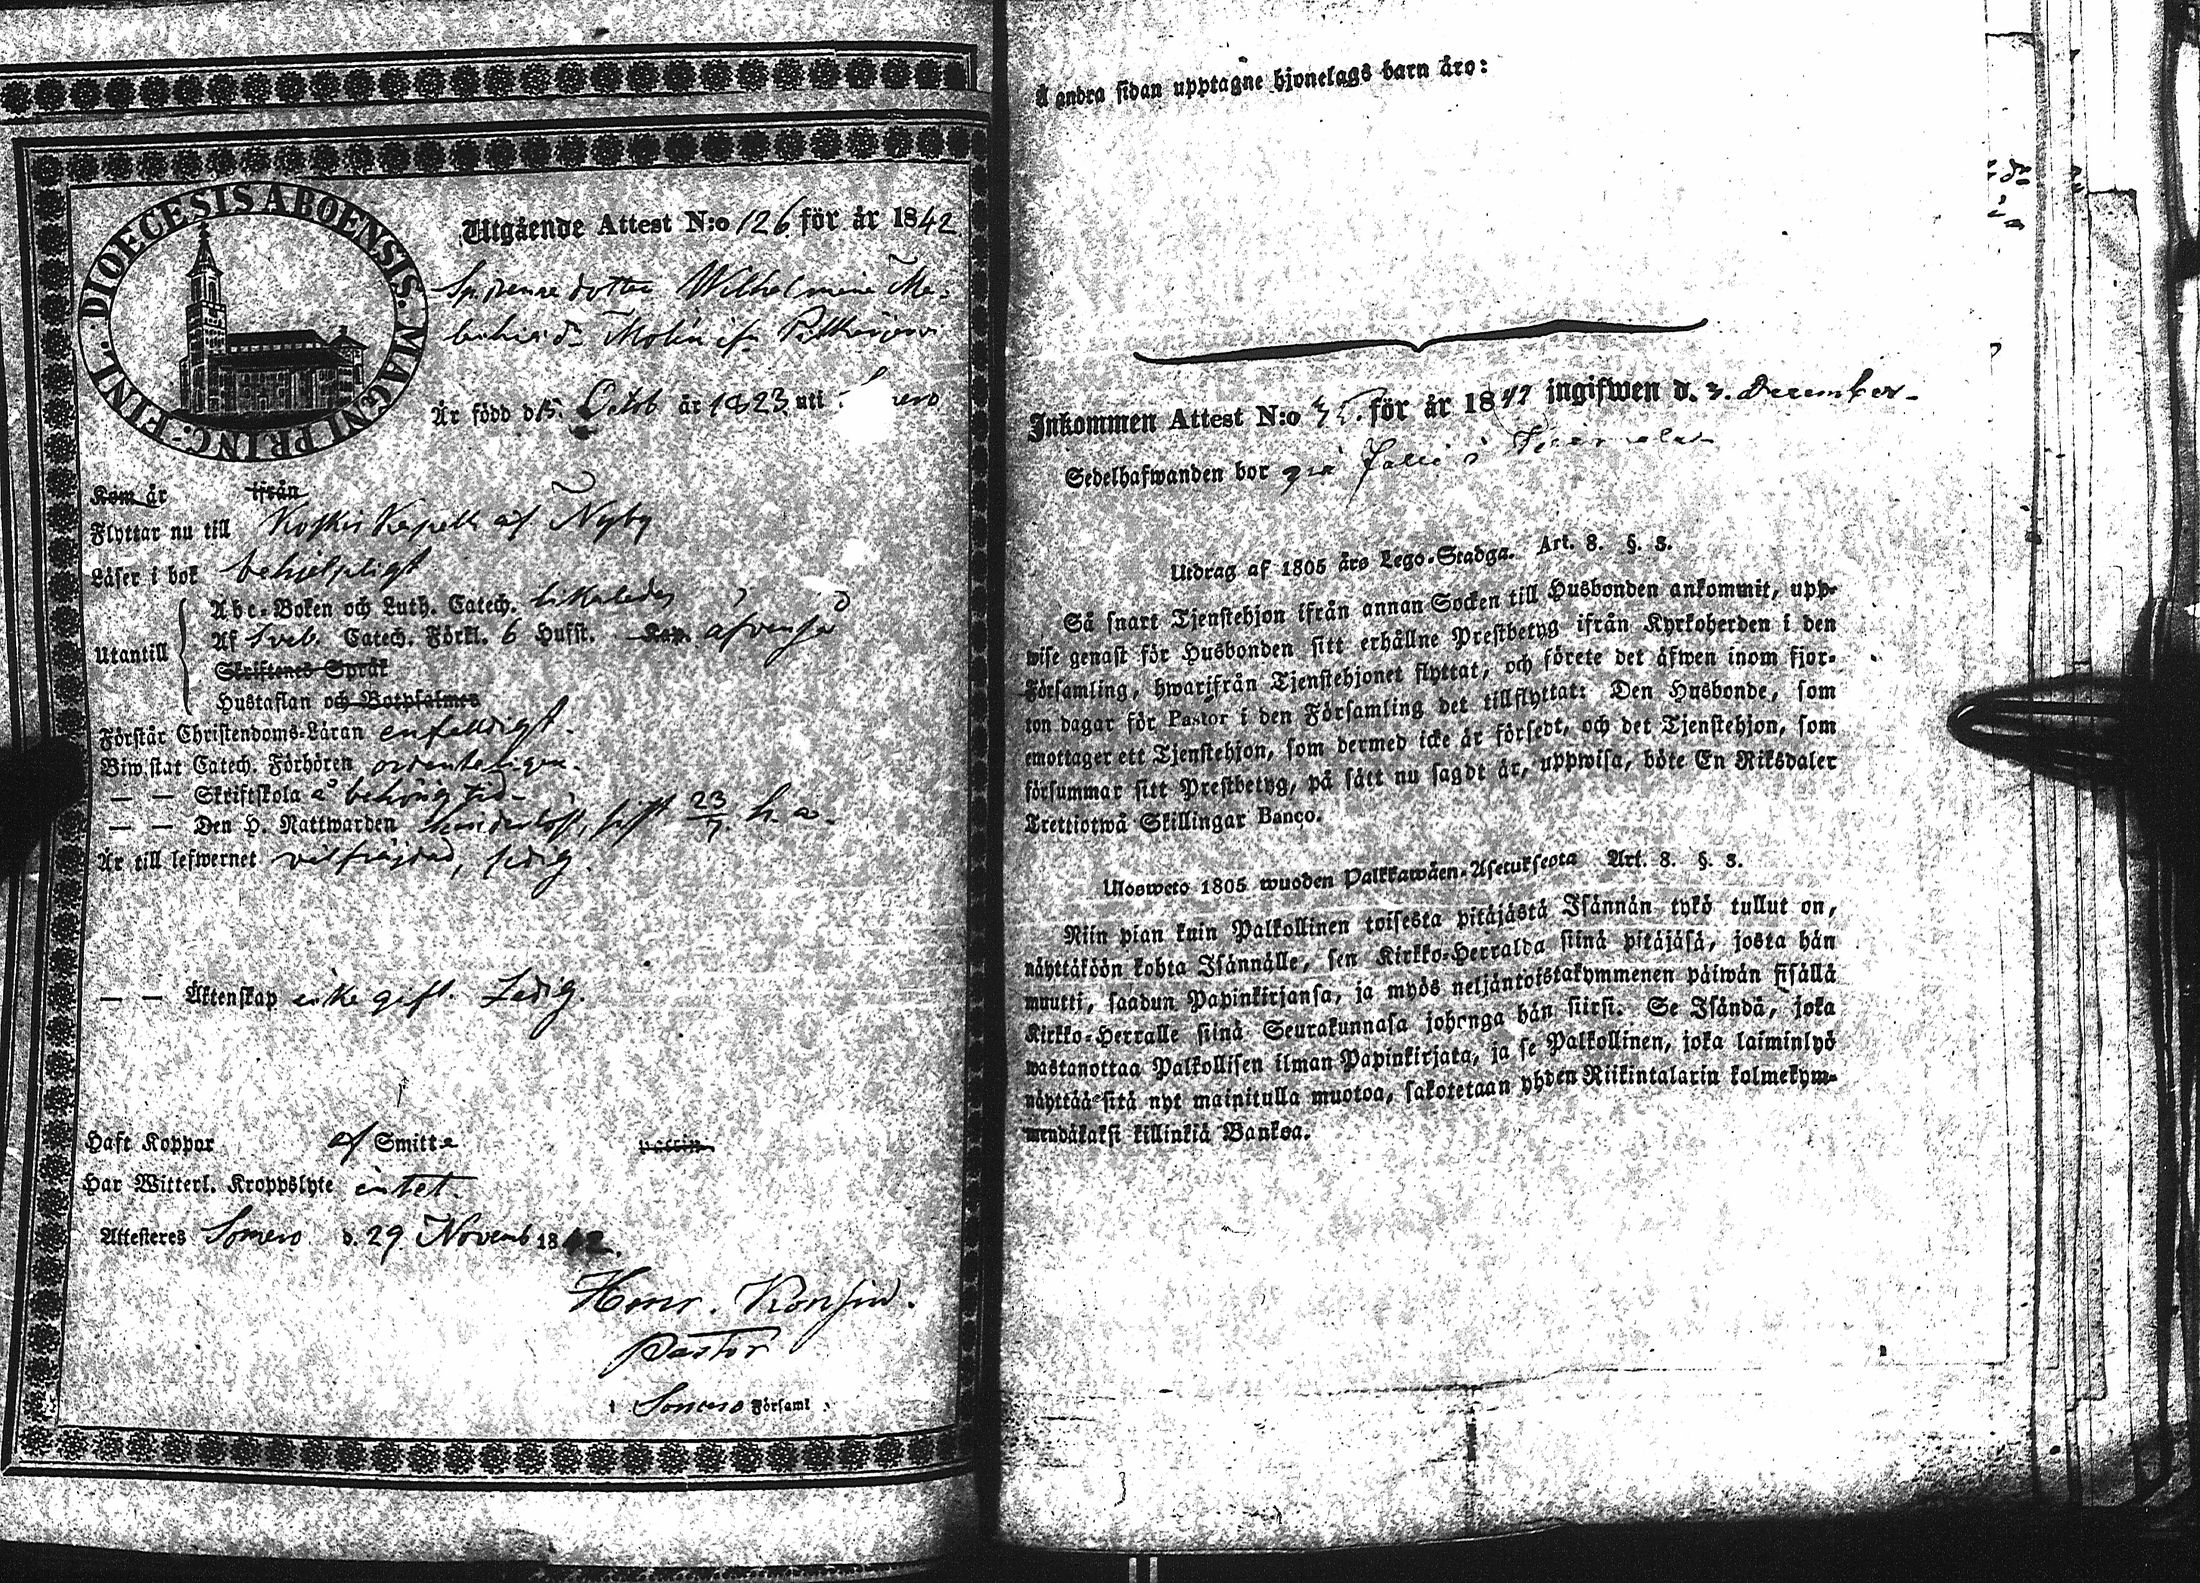 DIOECESIS ABOENSIS. MAGNI PRINC. FINL.
Utgående Attest N:o 126 för år 1842
Wilhelmina
Är född d. 15. Octob år 1823 uti
Kom år ifrån
Flyttar nu till Koskis Kapell af Nyby
Läser i bok behjelpligt
Utantill
Abc-Boken och Luth. Catech. likaledes
Af Sveb. Catech. Förkl. 6 Hufst. Kap. afven så
Skriftenes Språk
Hustaflan och Botpsalmer
Förstår Christendoms-Läran enfalldigt.
Biw.stat Catech. Förhören ordenteligen.
— — Skriftskola å behörig tid
— — Den H. Nattwarden sist 23/7. h. a.
Är till lefwernet välfräjdad, ledig.
— — Äktenskap icke gift. Ledig.
Haft Koppor af Smitta vaccin
Har Witterl. Kroppslyte intet.
Attesteres Somero d. 29 Novemb 1842.
Henr. Konsin.
Pastor
i Somero Församl.
Å andra sidan upptagne hjonelags barn äro:
Inkommen Attest N:o för år 1842 ingifwen d. 3. December
Sedelhafwanden bor på
Utdrag af 1805 års Lego-Stadga. Art. 8. §. 3.
Så snart Tjenstehjon ifrån annan Socken till Husbonden ankommit, upp-
wise genast för Husbonden sitt erhållne Prestbetyg ifrån Kyrkoherden i den
Församling, hwarifrån Tjenstehjonet flyttat, och förete det äfwen inom fjor-
ton dagar för Pastor i den Församling det tillflyttat: Den Husbonde, som
emottager ett Tjenstehjon, som dermed icke är försedt, och det Tjenstehjon, som
försummar sitt Prestbetyg, på sätt nu sagdt är, uppwisa, böte En Riksdaler
Trettiotwå Skillingar Banco.
Ulosweto 1805 wuoden Palkkawäen-Asetuksesta Art. 8. §. 3.
Niin pian kuin Palkollinen toisesta pitäjästä Isännän tykö tullut on,
näyttäköön kohta Isännälle, sen Kirkko-Herralda siinä pitäjäsä, josta hän
muutti, saadun Papinkirjansa, ja myös neljäntoistakymmenen päiwän sisällä
Kirkko-Herralle siinä Seurakunnasa johonga hän siirsi. Se Isändä, joka
wastanottaa Palkollisen ilman Papinkirjata, ja se Palkollinen, joka laiminlyö
näyttää sitä nyt mainitulla muotoa, sakotetaan yhden Riikintalarin kolmekym-
mendäkaksi killinkiä Bankoa.